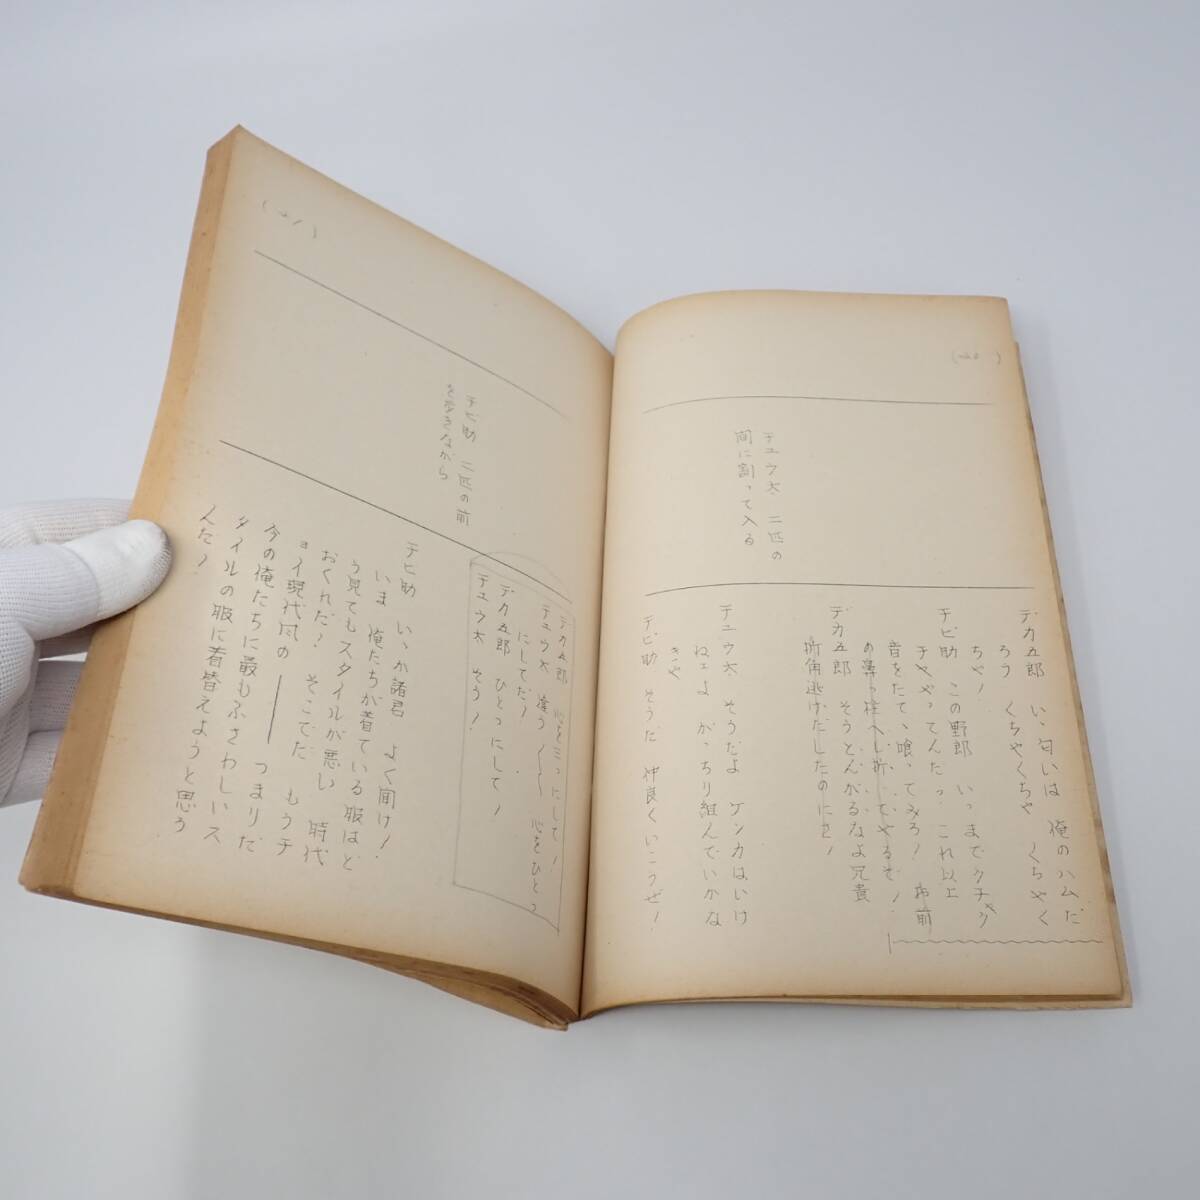 チュウ太 二匹の
間に割って入る
デカ五郎 いゝ匂いは 俺のハムだ
ろう くちゃくちゃ くちゃく
ちゃ!
チビ助 この野郎 いつまでクチャク
チャやってんだっ これ以上
音をたてゝ喰ってみろ! お前
の鼻っ柱へし折ってやるぞ!
デカ五郎 そうとんがるなよ兄貴
折角逃げだしたのにさ!
チュウ太 そうだよ ケンカはいけ
ねェよ がっちり組んでいかな
きゃ
チビ助 そうだ 仲良くいこうぜ!
チビ助 二匹の前
を歩きながら
デカ五郎 心を三つにして!
チュウ太 違う〱〱 心をひとつ
にしてだ!
デカ五郎 ひとつにして!
チュウ太 そう!
チビ助 いゝか諸君 よく聞け!
いま 俺たちが着ている服はど
う見てもスタイルが悪い 時代
おくれだ! そこでだ もうチ
ョイ現代風の ── つまりだ
今の俺たちに最もふさわしいス
タイルの服に着替えようと思う
んだ!